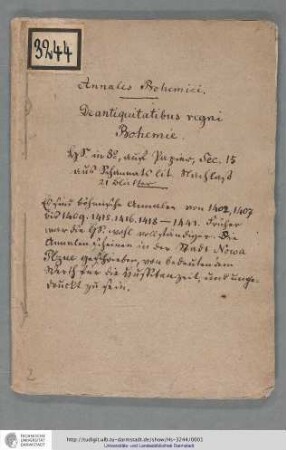 3244
Annales Bohemici.
De antiquitatibus regni
Bohemie.
HS. in 8o, auf Papier, Sec. 15
aus Schannats lit. Nachlaß
21 Blätter
Es sind böhmische Annalen von 1402, 1407
bis 1409. 1415. 1416. 1418 – 1441. Früher
war die HS. wohl vollständiger. Die
Annalen scheinen in der Stadt Nowa
Plzne geschrieben, von bedeutendem
Werth für die Hussitenzeit, und unge-
druckt zu sein.
2
TECHNISCHE
UNIVERSITÄT
DARMSTADT
http://tudigit.ulb.tu-darmstadt.de/show/Hs-3244/0001
Universitäts- und Landesbibliothek Darmstadt